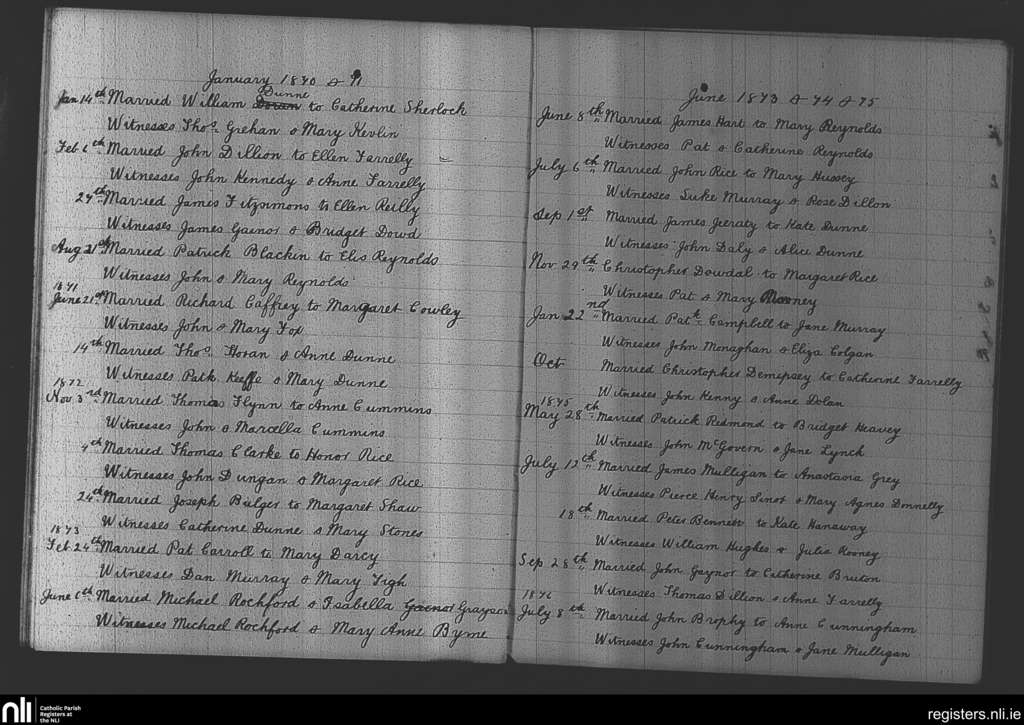 January 1870 & 71
Dunne
Jan 14th Married William Doran to Catherine Sherlock
Witnesses Thos. Grehan & Mary Kevlin
Feb 6th Married John Dillion to Ellen Farrelly
Witnesses John Kennedy & Anne Farrelly
24th Married James Fitzsimons to Ellen Reilly
Witnesses James Gainor & Bridget Dowd
Aug 21st Married Patrick Blackin to Elis Reynolds
Witnesses John & Mary Reynolds
1871
June 21st Married Richard Caffrey to Margaret Cowley
Witnesses John & Mary Fox
14th Married Thos. Horan & Anne Dunne
Witnesses Patk Keeffe & Mary Dunne
1872
Nov 3rd Married Thomas Flynn to Anne Cummins
Witnesses John & Marcella Cummins
4th Married Thomas Clarke to Honor Rice
Witnesses John Dungan & Margaret Rice
24th Married Joseph Bulger to Margaret Shaw
Witnesses Catherine Dunne & Mary Stones
1873
Feb 24th Married Pat Carroll to Mary Darcy
Witnesses Dan Murray & Mary Tigh
June 6th Married Michael Rochford & Isabella Gainor Grayson
Witnesses Michael Rochford & Mary Anne Byrne
June 1873 & 74 & 75
June 8th Married James Hart to Mary Reynolds
Witnesses Pat & Catherine Reynolds
July 6th Married John Rice to Mary Hussey
Witnesses Luke Murray & Rose Dillon
Sep 1st Married James Jeeraty to Kate Dunne
Witnesses John Daly & Alice Dunne
Nov 29th Christopher Dowdal to Margaret Rice
Witnesses Pat & Mary Mooney
Jan 22nd Married Patk Campbell to Jane Murray
Witnesses John Monaghan & Eliza Colgan
Oct Married Christopher Dempsey to Catherine Farrelly
Witnesses John Kenny & Anne Dolan
1875
May 28th Married Patrick Redmond to Bridget Heavey
Witnesses John McGovern & Jane Lynch
July 12th Married James Mulligan to Anastasia Grey
Witnesses Pierce Henry Sinot & Mary Agnes Donnelly
18th Married Peter Bennett to Kate Hanaway
Witnesses William Hughes & Julia Rooney
Sep 28th Married John Gaynor to Catherine Bruton
Witnesses Thomas Dillion & Anne Farrelly
1876
July 8th Married John Brophy to Anne Cunningham
Witnesses John Cunningham & Jane Mulligan
nli
Catholic Parish
Registers at
the NLI
registers.nli.ie